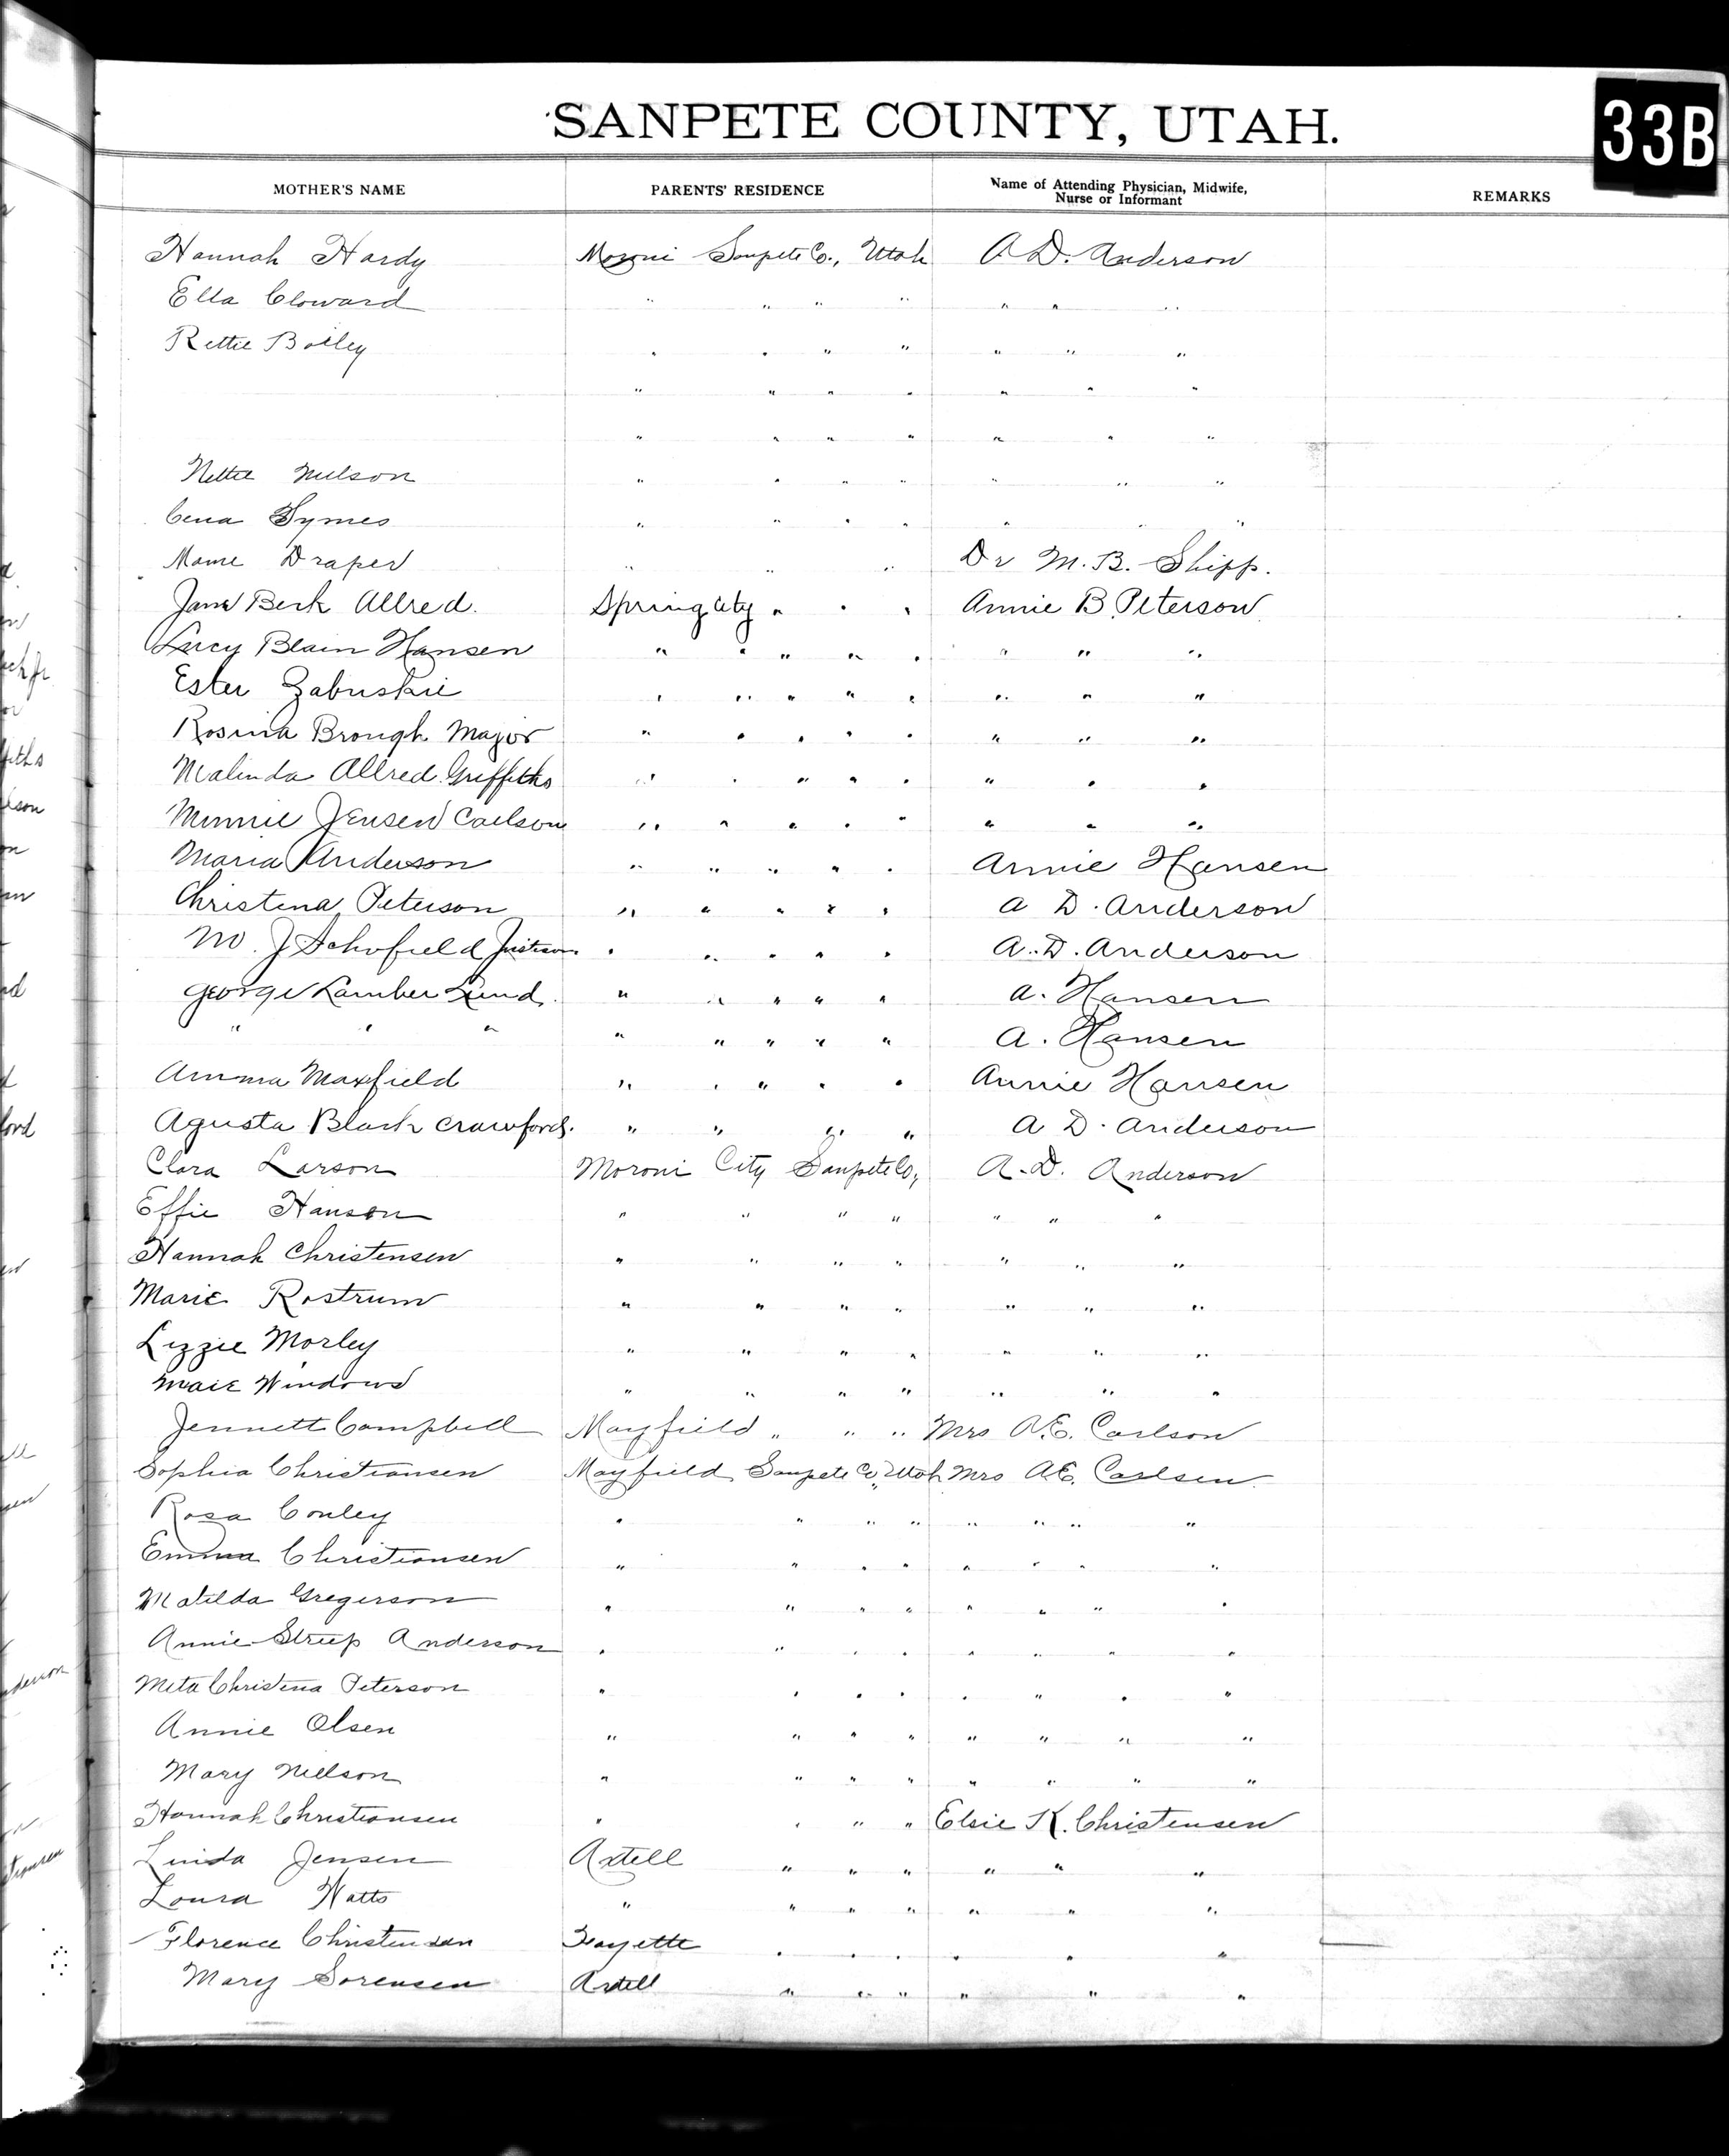 SANPETE COUNTY, UTAH.
33B
MOTHER'S NAME PARENTS' RESIDENCE Name of Attending Physician, Midwife, Nurse or Informant REMARKS
Hannah Hardy Moroni Sanpete Co., Utah A D. Anderson
Ella Cloward " " " " " " "
Rettie Bailey " " " " " " "
" " " " " " "
" " " " " " "
Nettie Nielson " " " " " " "
Cena Symes " " " " " " "
Mame Draper " " " Dr M. B. Shipp.
Jane Beck Allred. Spring City " " " Annie B Peterson
Lucy Blain Hansen " " " " " " " "
Ester Zabriskie " " " " " " " "
Rosina Brough Major " " " " " " " "
Malinda Allred Griffiths " " " " " " " "
Minnie Jensen Carlson " " " " " " " "
Maria Anderson " " " " " Annie Hansen
Christena Peterson " " " " " A D. Anderson
M. J Schofield " " " " " A. D. Anderson
George Lamber Lund. " " " " " A. Hansen
" " " " " " " " A. Hansen
Amma Maxfield " " " " " Annie Hansen
Agusta Black Crawford. " " " " A D. Anderson
Clara Larson Moroni City Sanpete Co, A. D. Anderson
Effie Hanson " " " " " " "
Hannah Christensen " " " " " " "
Marie Rostrum " " " " " " "
Lizzie Morley " " " " " " "
Maie Windows " " " " " " "
Jennett Campbell Mayfield " " " Mrs A. E. Carlson
Sophia Christiansen Mayfield Sanpete Co, Utah Mrs A E. Carlsen
Rosa Conley " " " " " " " "
Emma Christiansen " " " " " " " "
Matilda Gregerson " " " " " " " "
Annie Streep Anderson " " " " " " " "
Meta Christena Peterson " " " " " " " "
Annie Olsen " " " " " " " "
Mary Nielson " " " " " " " "
Hannah Christiansen " " " " Elsie K. Christensen
Linda Jensen Axtell " " " " " "
Loura Watts " " " " " " "
Florence Christensen Fayette " " " " " "
Mary Sorensen Axtell " " " " " "